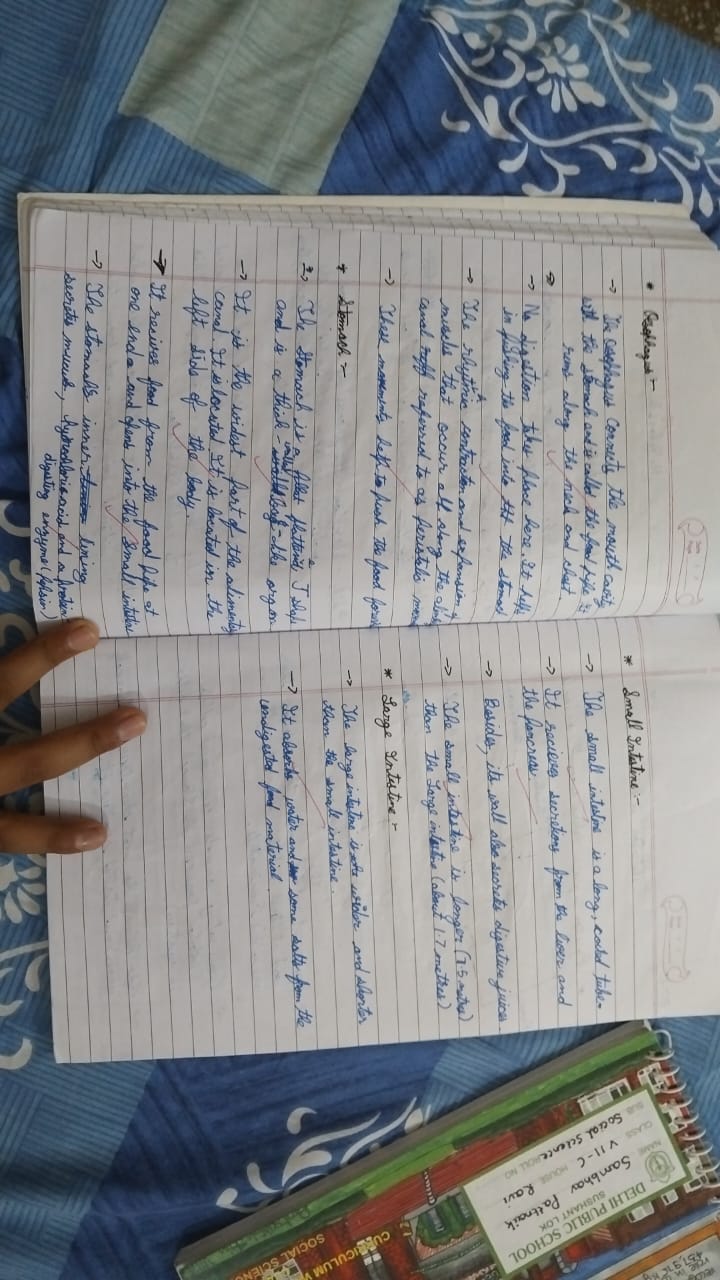 * Oesophagus :-
-> The oesophagus connects the mouth cavity
with the stomach and is called the food pipe. It
runs along the neck and chest
-> No digestion takes place here. It helps
in pushing the food into the stomach
-> The rhythmic contraction and expansion of
muscles that occur all along the
canal referred to as
-> These movements help to push the food
* Stomach :-
The stomach is a flattened, J
and is a thick-walled bag-like organ
-> It is the widest part of the alimentary
canal. It is located It is located in the
left side of the body.
-> It recives food from the food pipe at
one end and opens into the small intestine
-> The stomach's inner lining
secretes mucous, hydrochloric acid and a protein
digesting enzyme (Pepsin)
* Small Intestine :-
-> The small intestine is a long, coiled tube.
-> It recieves secretions from the liver and
the pancreas
-> Besides, its wall also secrets digestive juices.
-> The small intestine is longer (7.5 metres)
than the Large intestine (about 1.7 metres)
* Large Intestine :-
-> The large intestine is wider and shorter
than the small intestine.
-> It absorbs water and some salts from the
undigested food material
DELHI PUBLIC SCHOOL
SUSHANT LOK
NAME Sambhav Pattnaik
CLASS VII-C HOUSE Ravi
SUB Social science ROLL NO
CURRICULUM
SOCIAL SCIENCE